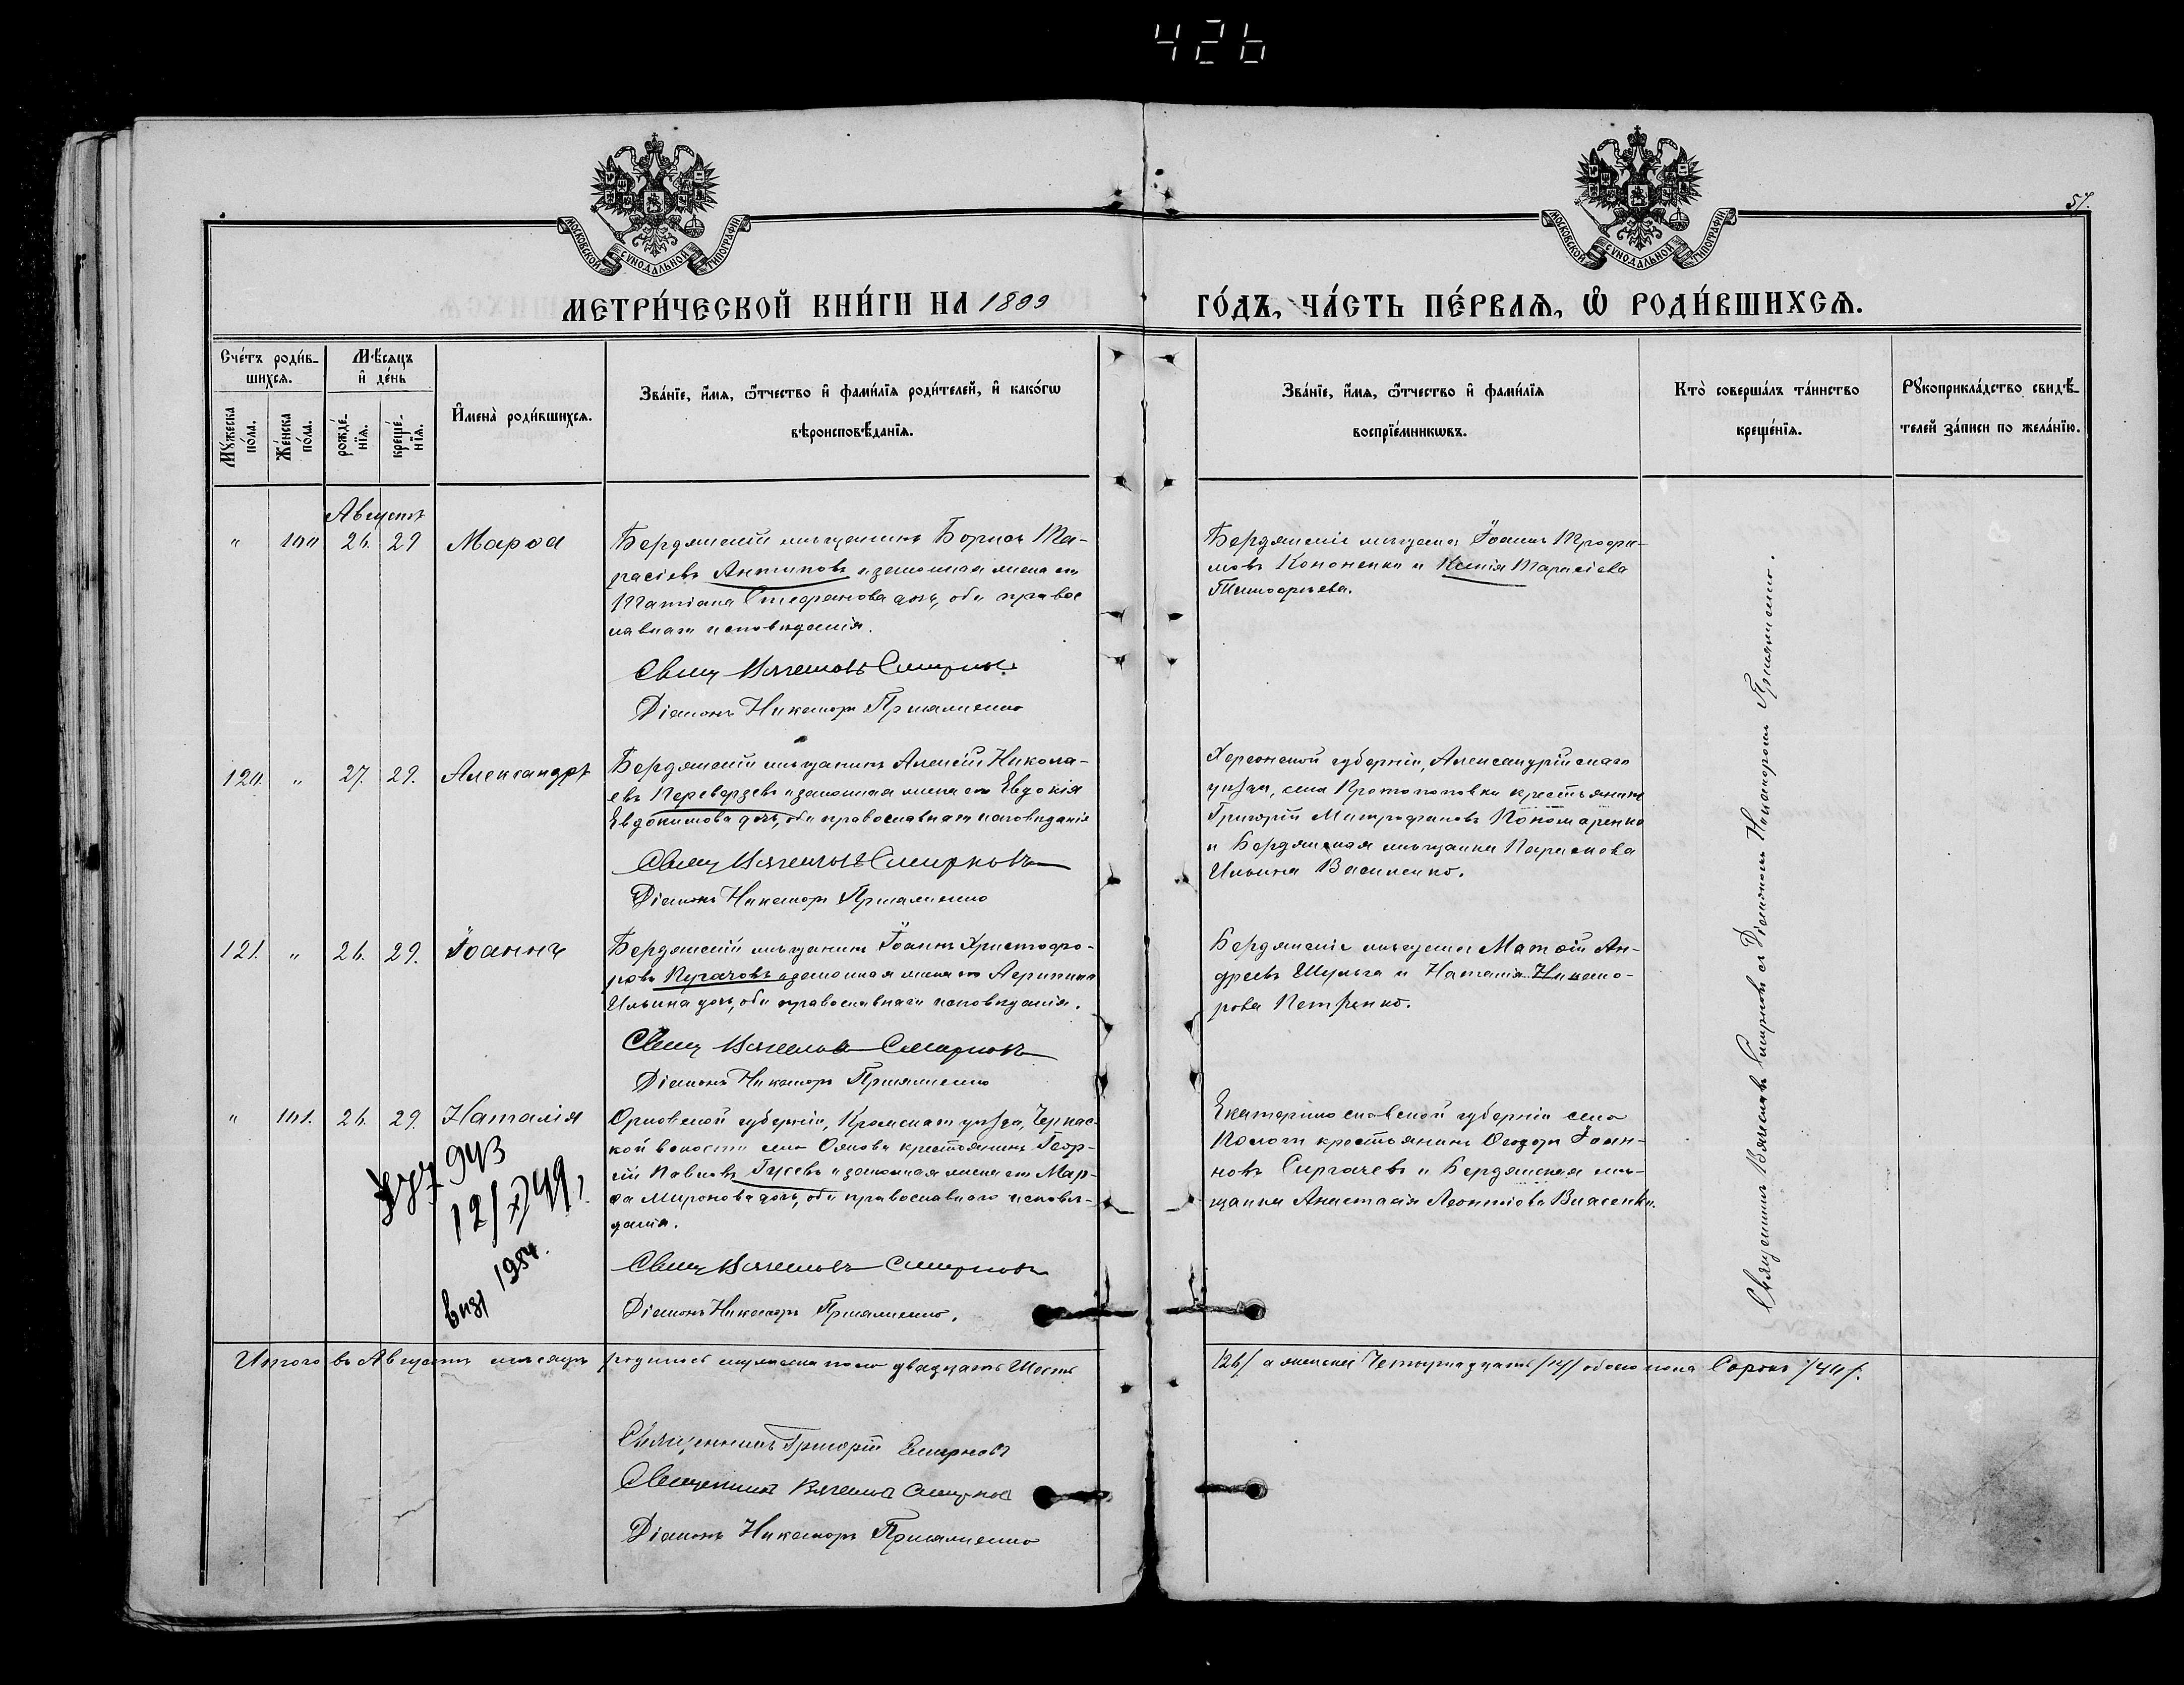 426
57.
МОСКОВСКОЙ СѴНОДАЛЬНОЙ ТИПОГРАФІИ
МОСКОВСКОЙ СѴНОДАЛЬНОЙ ТИПОГРАФІИ
МЕТРИ́ЧЕСКОЙ КНИ́ГИ НА 1899
ГО́ДЪ, ЧА́СТЬ ПЕ́РВАѦ, Ѽ РОДИ́ВШИХСѦ.
Сче́тъ роди́в-
шихсѧ.
Мꙋ́жеска по́ла.
Же́нска по́ла.
Мѣ́сѧцъ и҆ де́нь
рожде́-нїѧ.
креще́-нїѧ.
И҆мена̀ роди́вшихсѧ.
Зва́нїе, и҆́мѧ, ѻ҆́тчество и҆ фами́лїѧ роди́телей, и҆ како́гѡ
вѣроисповѣ́данїѧ.
Зва́нїе, и҆́мѧ, ѻ҆́тчество и҆ фами́лїѧ
воспрїе́мникѡвъ.
Кто̀ соверша́лъ та́инство
креще́нїѧ.
Рꙋкоприкла́дство свидѣ́-
телей за́писи по жела́нїю.
Августъ
" 100 26. 29 Марѳа
Бердянскій мѣщанинъ Борисъ Та-
расіевъ Антиповъ и законная жена его
Татіана Стефанова дочь, оба правос
лавнаго исповѣданія.
Свящ Вячеславъ Смирновъ
Діаконъ Никаноръ
Бердянскіе мѣщане Іоаннъ Трофи-
мовъ Кононенко и Ксенія Тарасіева
Тимофеева.
120. " 27. 29. Александръ
Бердянскій мѣщанинъ Алексій Никола-
евъ Переверзевъ и законная жена его Евдокія
Евдокимова дочь, оба православнаго исповѣданія
Свящ Вячеславъ Смирновъ
Діаконъ Никаноръ
Херсонской губерніи, Александрійскаго
уѣзда, села Протопоповки крестьянинъ
Григорій Митрофановъ Пономаренко
и Бердянская мѣщанка Параскева
Ильина Василенко.
121. " 26. 29. Іоаннъ
Бердянскій мѣщанинъ Іоаннъ Христофо-
ровъ Пугачовъ и законная жена его Агрипина
Ильина дочь, оба православнаго исповѣданія.
Свящ Вячеславъ Смирновъ
Діаконъ Никаноръ
Бердянскіе мѣщане Матѳій Ан-
дреевъ Шульга и Наталія Никано-
рова Петренко.
" 101. 26. 29. Наталія
Орловской губерніи, Кромскаго уѣзда, Черкас-
кой волости села крестьянинъ Геор-
гій Павловъ Гусевъ и законная жена его Мар-
ѳа Миронова дочь, оба православнаго исповѣ-
данія.
Свящ Вячеславъ Смирновъ
Діаконъ Никаноръ
Екатеринославской губерніи села
Пологи крестьянинъ Ѳеодоръ Іоан-
новъ Сиргачевъ и Бердянская мѣ-
щанка Анастасія Леонтіева Власенко.
943
12/X 49 г.
1954.
Священникъ Вячеславъ Смирновъ съ Діакономъ Никаноромъ
Итого въ Августѣ мѣсяцѣ родилось мужеска пола двадцать Шесть
/26/ а женска Четырнадцать /14/ обоего пола Сорокъ /40/.
Священникъ Григорій Смирновъ
Священникъ Вячеславъ Смирновъ
Діаконъ Никаноръ